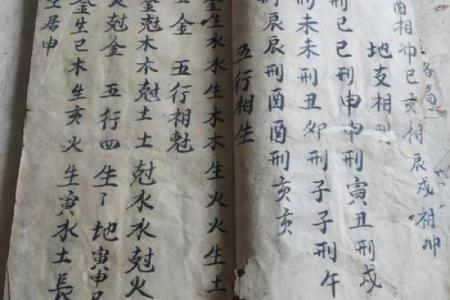 酉相冲巳亥相辰戌相冲
地支相刑
刑巳巳刑申申刑寅丑刑戌
刑未未刑丑卯刑子子刑午
刑辰辰刑酉酉刑亥亥
五行相生
金生水水生木木生火火生土
生金 五行相尅
金尅木木尅土土尅水水尅火
尅金 五行四生了地寅申巳
金生巳木生亥火生寅水土長
生居申